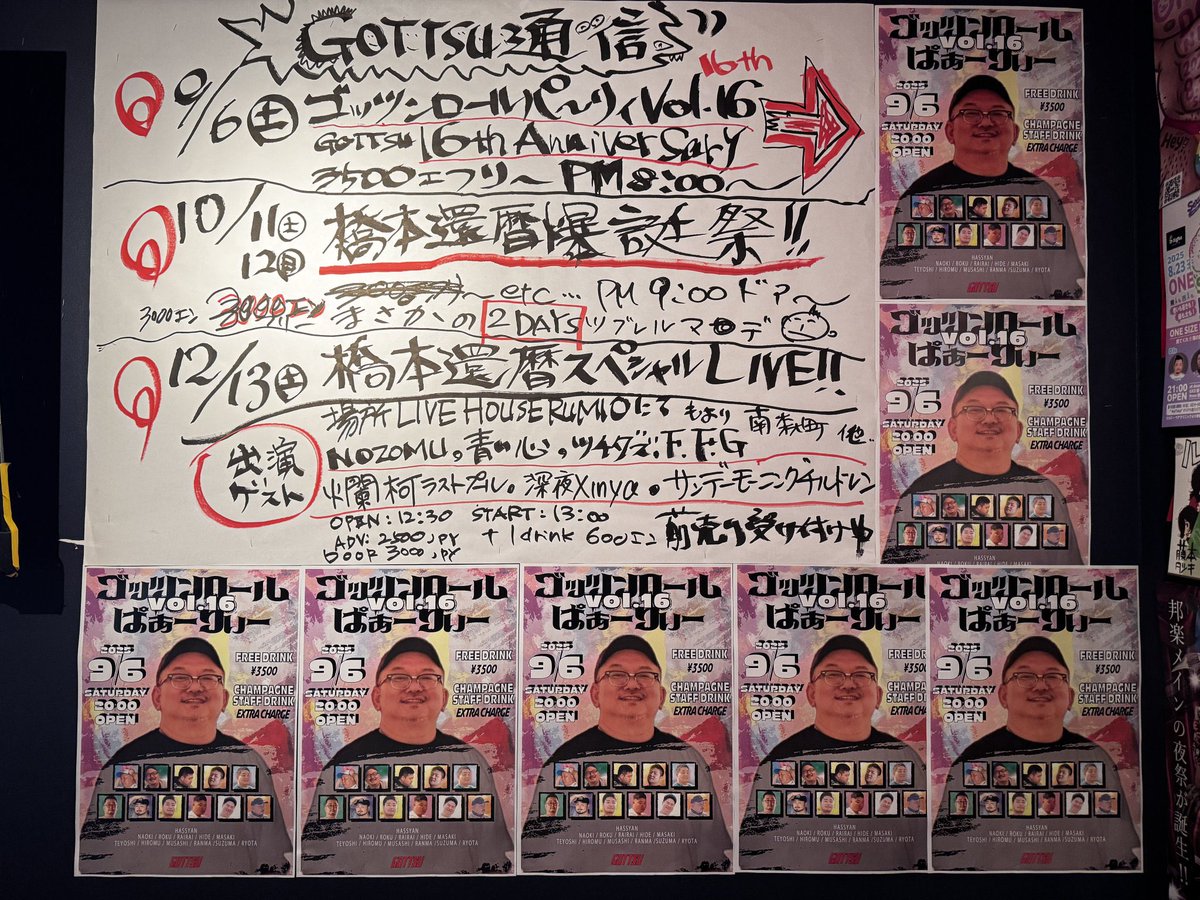 GOTTSU通信
16th
9/6土 ゴッツンロールパ〜リィ Vol.16
GOTTSU 16th Anniversary
3500エフリ〜 PM 8:00〜
10/11土 橋本還暦爆誕祭!!
12日
〜etc... PM 9:00 ドア〜
3000エン まさかの 2DAYS ツブレルマデ
12/13土 橋本還暦スペシャルLIVE!!
場所 LIVE HOUSE RUMIOにて もより 南森町 他
出演ゲスト
NOZOMU, 青い心, ツチダズ, F.F.G
爛柯ラストプル。深夜Xinya。サンデーモーニングチルドレン
OPEN:12:30 START:13:00
ADV:2500JPY + 1drink 600エン 前売り受け付け中
DOOR 3000JPY
ゴッツンロール
VOL.16
ぱぁーりぃー
2025
9/6
SATURDAY
20:00
OPEN
FREE DRINK
¥3500
CHAMPAGNE
STAFF DRINK
EXTRA CHARGE
HASSYAN
NAOKI / ROKU / RAIRAI / HIDE / MASAKI
TEYOSHI / HIROMU / MUSASHI / RANMA /SUZUMA / RYOTA
GOTTSU
ゴッツンロール
VOL.16
ぱぁーりぃー
2025
9/6
SATURDAY
20:00
OPEN
FREE DRINK
¥3500
CHAMPAGNE
STAFF DRINK
EXTRA CHARGE
ゴッツンロール
VOL.16
ぱぁーりぃー
2025
9/6
SATURDAY
20:00
OPEN
FREE DRINK
¥3500
CHAMPAGNE
STAFF DRINK
EXTRA CHARGE
HASSYAN
NAOKI / ROKU / RAIRAI / HIDE / MASAKI
TEYOSHI / HIROMU / MUSASHI / RANMA /SUZUMA / RYOTA
GOTTSU
ゴッツンロール
VOL.16
ぱぁーりぃー
2025
9/6
SATURDAY
20:00
OPEN
FREE DRINK
¥3500
CHAMPAGNE
STAFF DRINK
EXTRA CHARGE
HASSYAN
NAOKI / ROKU / RAIRAI / HIDE / MASAKI
TEYOSHI / HIROMU / MUSASHI / RANMA /SUZUMA / RYOTA
GOTTSU
ゴッツンロール
VOL.16
ぱぁーりぃー
2025
9/6
SATURDAY
20:00
OPEN
FREE DRINK
¥3500
CHAMPAGNE
STAFF DRINK
EXTRA CHARGE
HASSYAN
NAOKI / ROKU / RAIRAI / HIDE / MASAKI
TEYOSHI / HIROMU / MUSASHI / RANMA /SUZUMA / RYOTA
GOTTSU
ゴッツンロール
VOL.16
ぱぁーりぃー
2025
9/6
SATURDAY
20:00
OPEN
FREE DRINK
¥3500
CHAMPAGNE
STAFF DRINK
EXTRA CHARGE
HASSYAN
NAOKI / ROKU / RAIRAI / HIDE / MASAKI
TEYOSHI / HIROMU / MUSASHI / RANMA /SUZUMA / RYOTA
GOTTSU
ゴッツンロール
VOL.16
ぱぁーりぃー
2025
9/6
SATURDAY
20:00
OPEN
FREE DRINK
¥3500
CHAMPAGNE
STAFF DRINK
EXTRA CHARGE
HASSYAN
NAOKI / ROKU / RAIRAI / HIDE / MASAKI
TEYOSHI / HIROMU / MUSASHI / RANMA /SUZUMA / RYOTA
GOTTSU
2025
8.23
ONE
ONE SIZE
21:00
OPEN
邦楽メインの夜祭が誕生!!